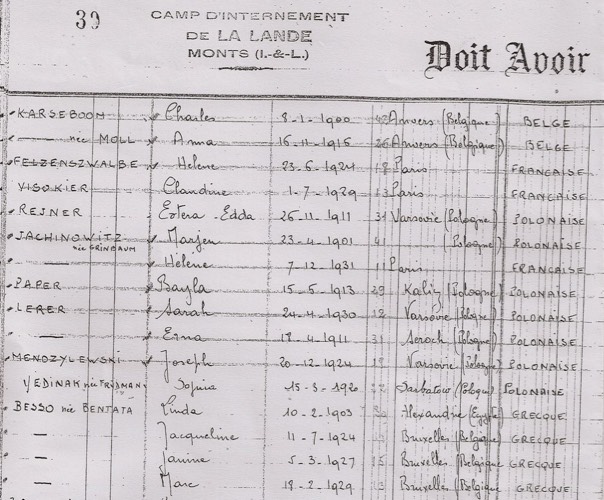 39
CAMP D'INTERNEMENT
DE LA LANDE
MONTS (I.-&-L.)
Doit Avoir
KARSEBOOM Charles 8-1-1900 42 Anvers (Belgique) BELGE
— née MOLL Anna 16-11-1916 26 Anvers (Belgique) BELGE
FELZENSZWALBE Helene 23-6-1924 18 Paris FRANCAISE
VISOKIER Claudine 1-7-1929 13 Paris FRANCAISE
REJNER Estera-Edda 26-11-1911 31 Varsovie (Pologne) POLONAISE
JACHINOWITZ Marjem 23-4-1901 41 (Pologne) POLONAISE
née GRINBAUM
— Hélène 7-12-1931 11 Paris FRANCAISE
PAPER Bayla 15-5-1913 29 Kalisz (Pologne) POLONAISE
LERER Sarah 24-4-1930 12 Varsovie (Pologne) POLONAISE
— Erna 18-4-1911 31 (Pologne) POLONAISE
MENDZYLEWSKI Joseph 20-12-1924 18 Varsovie (Pologne) POLONAISE
YEDINAK née FRIDMAN 15-3-1920 22 (Pologne) POLONAISE
BESSO née BENTATA Linda 10-2-1903 Alexandrie (Egypte) GRECQUE
— Jacqueline 11-7-1924 Bruxelles (Belgique) GRECQUE
— Janine 5-3-1927 15 Bruxelles (Belgique) GRECQUE
— Marc 18-2-1929 13 Bruxelles (Belgique) GRECQUE